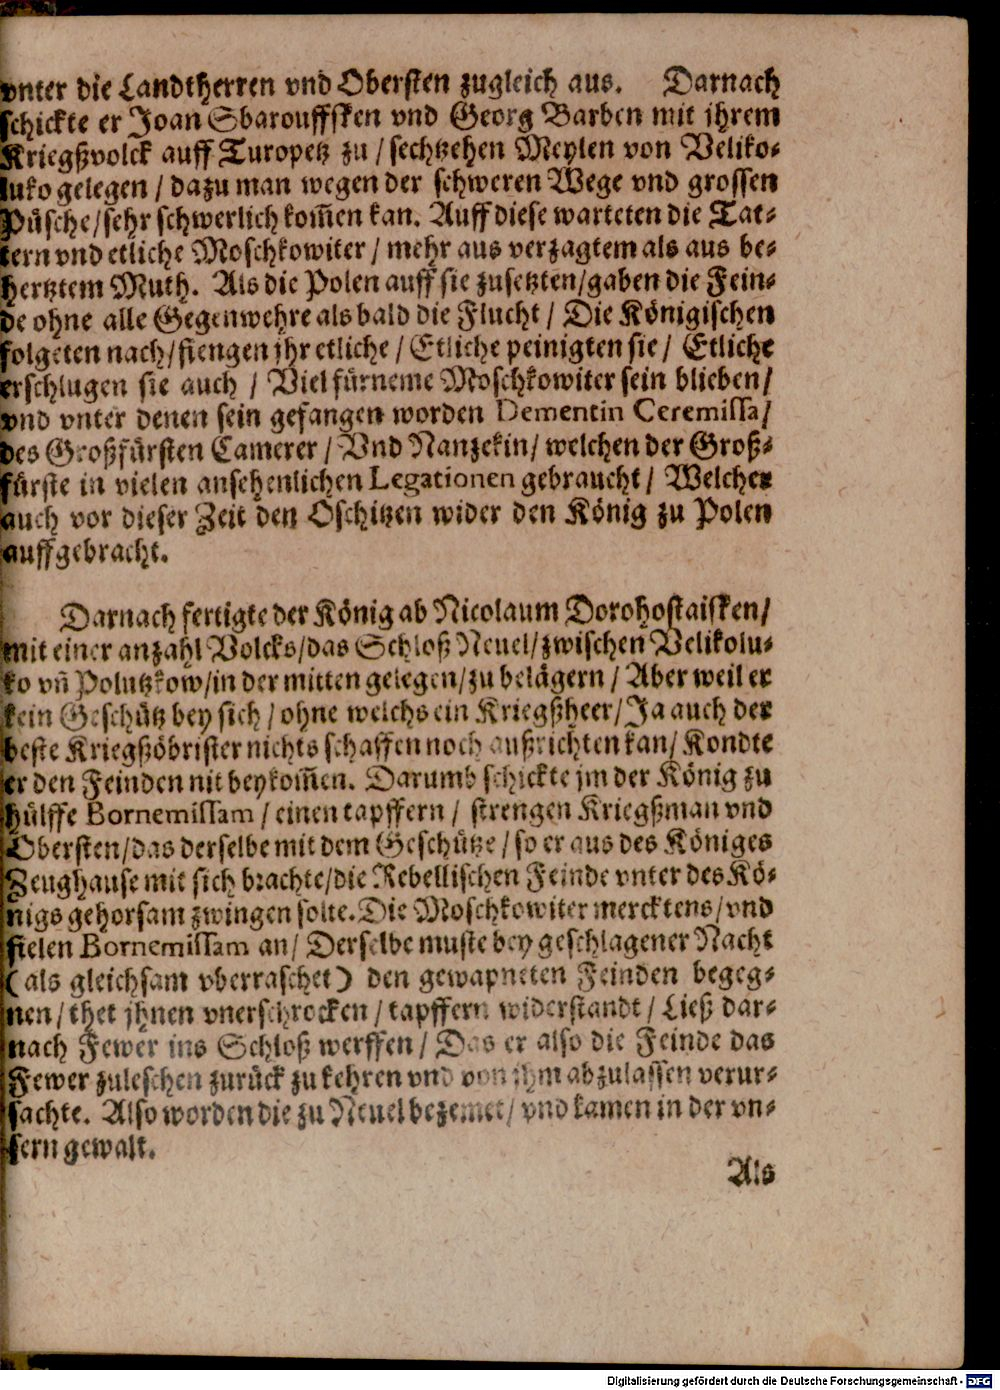 vnter die Landtherren vnd Obersten zugleich aus. Darnach
schickte er Joan Sbarouffsken vnd Georg Barben mit jhrem
Kriegßvolck auff Turopetz zu / sechtzehen Meylen von Veliko-
luko gelegen / dazu man wegen der schweren Wege vnd grossen
Püsche / sehr schwerlich kom̃en kan. Auff diese warteten die Tat-
tern vnd etliche Moschkowiter / mehr aus verzagtem als aus be-
hertztem Muth. Als die Polen auff sie zusetzten / gaben die Fein-
de ohne alle Gegenwehre als bald die Flucht / Die Königischen
folgeten nach / fiengen jhr etliche / Etliche peinigten sie / Etliche
erschlugen sie auch / Viel fürneme Moschkowiter sein blieben /
vnd vnter denen sein gefangen worden Dementin Ceremissa /
des Großfürsten Camerer / Vnd Nanzekin / welchen der Groß-
fürste in vielen ansehenlichen Legationen gebraucht / Welcher
auch vor dieser Zeit den Oschitzen wider den König zu Polen
auffgebracht.
Darnach fertigte der König ab Nicolaum Dorohostaisken /
mit einer anzahl Volcks / das Schloß Neuel / zwischen Velikolu-
ko vñ Polutzkow / in der mitten gelegen / zu belägern / Aber weil er
kein Geschütz bey sich / ohne welchs ein Kriegßheer / Ja auch der
beste Kriegßöbrister nichts schaffen noch außrichten kan / Kondte
er den Feinden nit beykom̃en. Darumb schickte jm der König zu
hülffe Bornemissam / einen tapffern / strengen Kriegßman vnd
Obersten / das derselbe mit dem Geschütze / so er aus des Königes
Zeughause mit sich brachte / die Rebellischen Feinde vnter des Kö-
nigs gehorsam zwingen solte. Die Moschkowiter mercktens / vnd
fielen Bornemissam an / Derselbe muste bey geschlagener Nacht
(als gleichsam vberraschet) den gewapneten Feinden begeg-
nen / thet jhnen vnerschrocken / tapffern widerstandt / Ließ dar-
nach Fewer ins Schloß werffen / Das er also die Feinde das
Fewer zuleschen zurück zu kehren vnd von jhm abzulassen verur-
sachte. Also worden die zu Neuel bezemet / vnd kamen in der vn-
sern gewalt.
Als
Digitalisierung gefördert durch die Deutsche Forschungsgemeinschaft - DFG